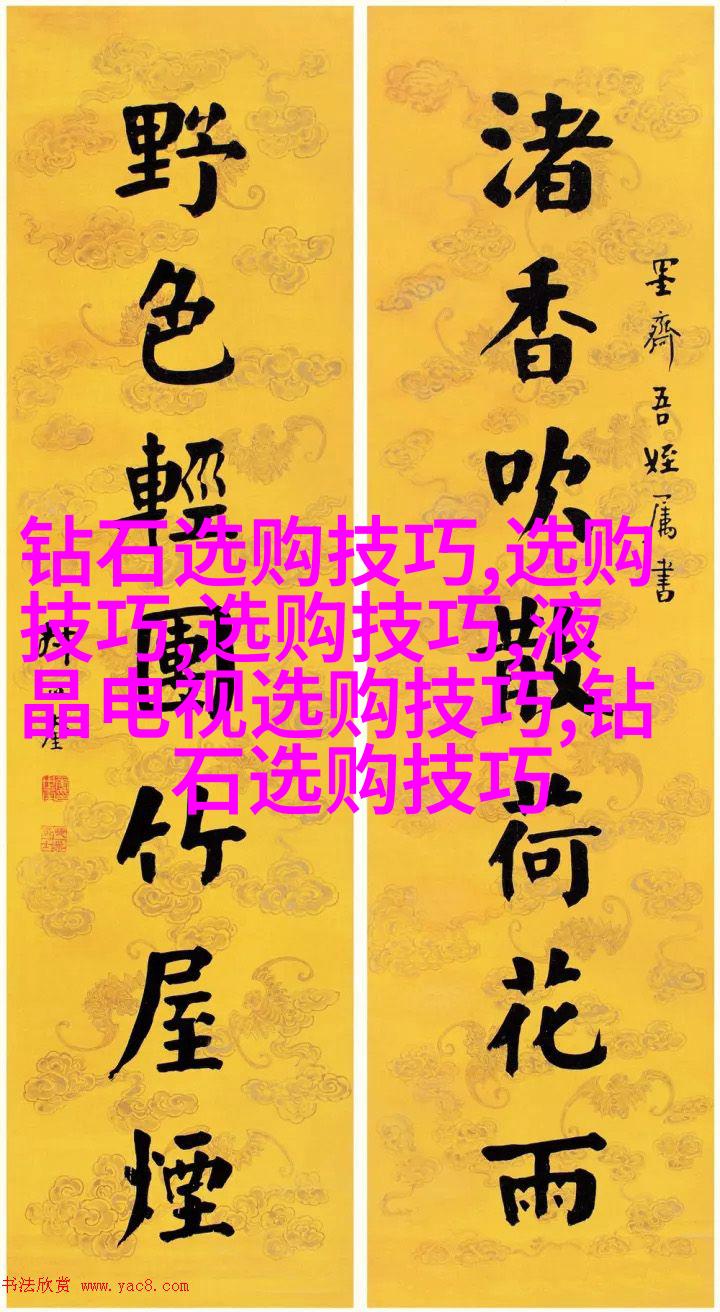 渚香吹散荷花雨
墨齋吾姪属書
野色輕團竹屋煙
钻石选购技巧,选购
技巧,选购技巧,液
晶电视选购技巧,钻
石选购技巧
书法欣赏 www.yac8.com